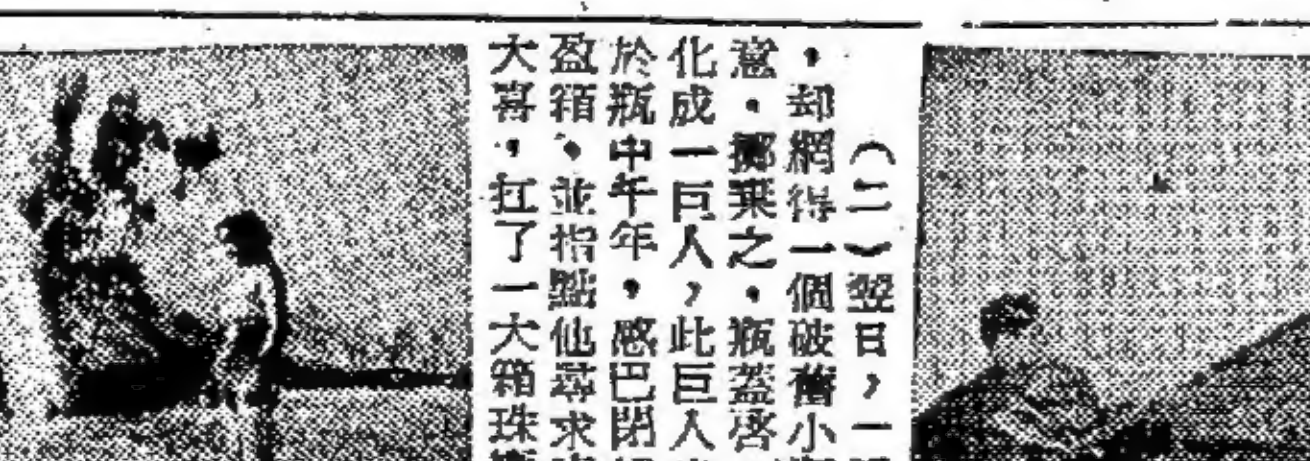 （二）翌日，一
，却網得一個破舊小
意，擲棄之，瓶蓋啓
化成一巨人，此巨人
於瓶中千年，感巴閉
盈箱，並指點他尋求
大喜，扛了一大箱珠